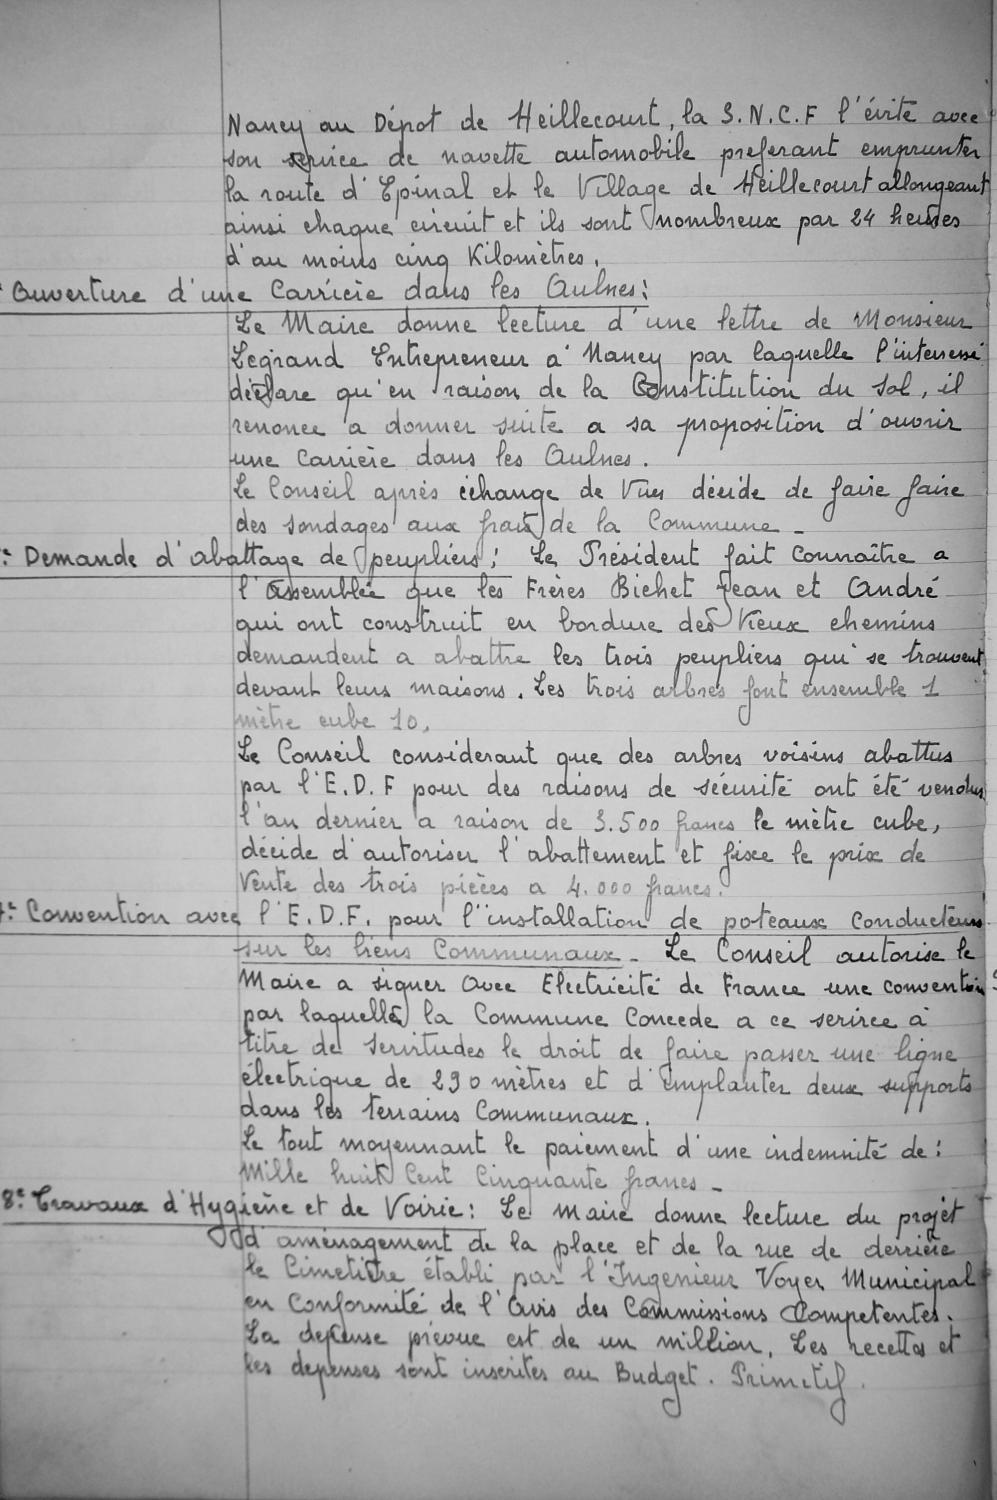 Nancy au Dépot de Heillecourt, la S.N.C.F l'évite avec
son service de navette automobile preferant emprunter
la route d'Epinal et le Village de Heillecourt allongeant
ainsi chaque circuit et ils sont nombreux par 24 heures
d'au moins cinq Kilomètres.
Ouverture d'une Carrière dans les Aulnes:
Le Maire donne lecture d'une lettre de Monsieur
Legrand Entrepreneur à Nancy par laquelle l'interessé
déclare qu'en raison de la Constitution du Sol, il
renonce a donner suite a sa proposition d'ouvrir
une Carrière dans les Aulnes.
Le Conseil après échange de Vues décide de faire faire
des sondages aux frais de la Commune -
Demande d'abattage de peupliers: Le Président fait Connaître a
l'Assemblée que les Frères Bichet Jean et André
qui ont construit en bordure des Vieux chemins
demandent a abattre les trois peupliers qui se trouvent
devant leurs maisons. Les trois arbres font ensemble 1
mètre cube 10.
Le Conseil considerant que des arbres voisins abattus
par l'E.D.F pour des raisons de sécurité ont été vendus
l'an dernier a raison de 3.500 francs le mètre cube,
décide d'autoriser l'abattement et fixe le prix de
Vente des trois pièces a 4.000 francs.
7°- Convention avec l'E.D.F. pour l'installation de poteaux conducteurs
sur les biens Communaux - Le Conseil autorise le
Maire a signer avec Electricité de France une convention
par laquelle la Commune Concede a ce service à
titre de Servitudes le droit de faire passer une ligne
électrique de 290 mètres et d'implanter deux supports
dans les terrains Communaux.
Le tout moyennant le paiement d'une indemnité de:
Mille huit Cent Cinquante francs -
8°- Travaux d'Hygiène et de Voirie: Le Maire donne lecture du projet
d'aménagement de la place et de la rue de derrière
le Cimetière établi par l'Ingenieur Voyer Municipal
en Conformité de l'Avis des Commissions Competentes.
La depense prévue est de un million. Les recettes et
les depenses sont inscrites au Budget. Primitif.